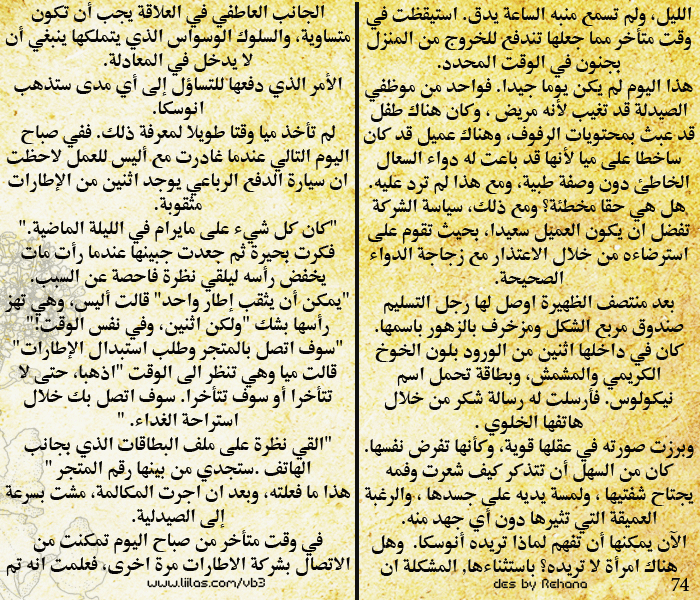 الليل، ولم تسمع منبه الساعة يدق. استيقظت في
وقت متأخر مما جعلها تندفع للخروج من المنزل
بجنون في الوقت المحدد.
هذا اليوم لم يكن يوما جيدا. فواحد من موظفي
الصيدلة قد تغيب لأنه مريض ، وكان هناك طفل
قد عبث بمحتويات الرفوف، وهناك عميل قد كان
ساخطا على ميا لأنها قد باعت له دواء السعال
الخاطئ دون وصفة طبية، ومع هذا لم ترد عليه.
هل هي حقا مخطئة؟ ومع ذلك، سياسة الشركة
تفضل ان يكون العميل سعيدا، بحيث تقوم على
استرضاءه من خلال الاعتذار مع زجاجة الدواء
الصحيحة.
بعد منتصف الظهيرة اوصل لها رجل التسليم
صندوق مربع الشكل ومزخرف بالزهور باسمها.
كان في داخلها اثنين من الورود بلون الخوخ
الكريمي والمشمش، وبطاقة تحمل اسم
نيكولوس. فأرسلت له رسالة شكر من خلال
هاتفها الخلوي .
وبرزت صورته في عقلها قوية، وكأنها تفرض نفسها.
كان من السهل أن تتذكر كيف شعرت وفمه
يجتاح شفتيها ، ولمسة يديه على جسدها ، والرغبة
العميقة التي تثيرها دون أي جهد منه.
الآن يمكنها أن تفهم لماذا تريده أنوسكا. وهل
هناك امرأة لا تريده؟ باستثناءها, المشكلة ان
الجانب العاطفي في العلاقة يجب أن تكون
متساوية، والسلوك الوسواس الذي يتملكها ينبغي أن
لا يدخل في المعادلة.
الأمر الذي دفعها للتساؤل إلى أي مدى ستذهب
انوسكا.
لم تأخذ ميا وقتا طويلا لمعرفة ذلك. ففي صباح
اليوم التالي عندما غادرت مع أليس للعمل لاحظت
ان سيارة الدفع الرباعي يوجد اثنين من الإطارات
مثقوبة.
"كان كل شيء على مايرام في الليلة الماضية."
فكرت بحيرة ثم جعدت جبينها عندما رأت مات
يخفض رأسه ليلقي نظرة فاحصة عن السبب.
"يمكن أن يثقب إطار واحد" قالت أليس، وهي تهز
رأسها بشك "ولكن اثنين، وفي نفس الوقت!"
"سوف اتصل بالمتجر وطلب استبدال الإطارات"
قالت ميا وهي تنظر الى الوقت "اذهبا، حتى لا
تتأخرا أو سوف تتأخرا. سوف اتصل بك خلال
استراحة الغداء. "
"القي نظرة على ملف البطاقات الذي بجانب
الهاتف .ستجدي من بينها رقم المتجر "
هذا ما فعلته، وبعد ان اجرت المكالمة، مشت بسرعة
إلى الصيدلية.
في وقت متأخر من صباح اليوم تمكنت من
الاتصال بشركة الاطارات مرة اخرى، فعلمت انه تم
des by Rehana
www.liilas.com/vb3
74